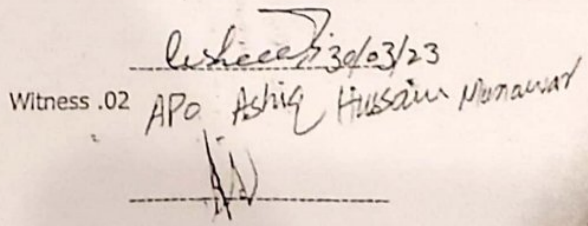 30/03/23
Witness .02 APO Ashiq Hussain Munawar